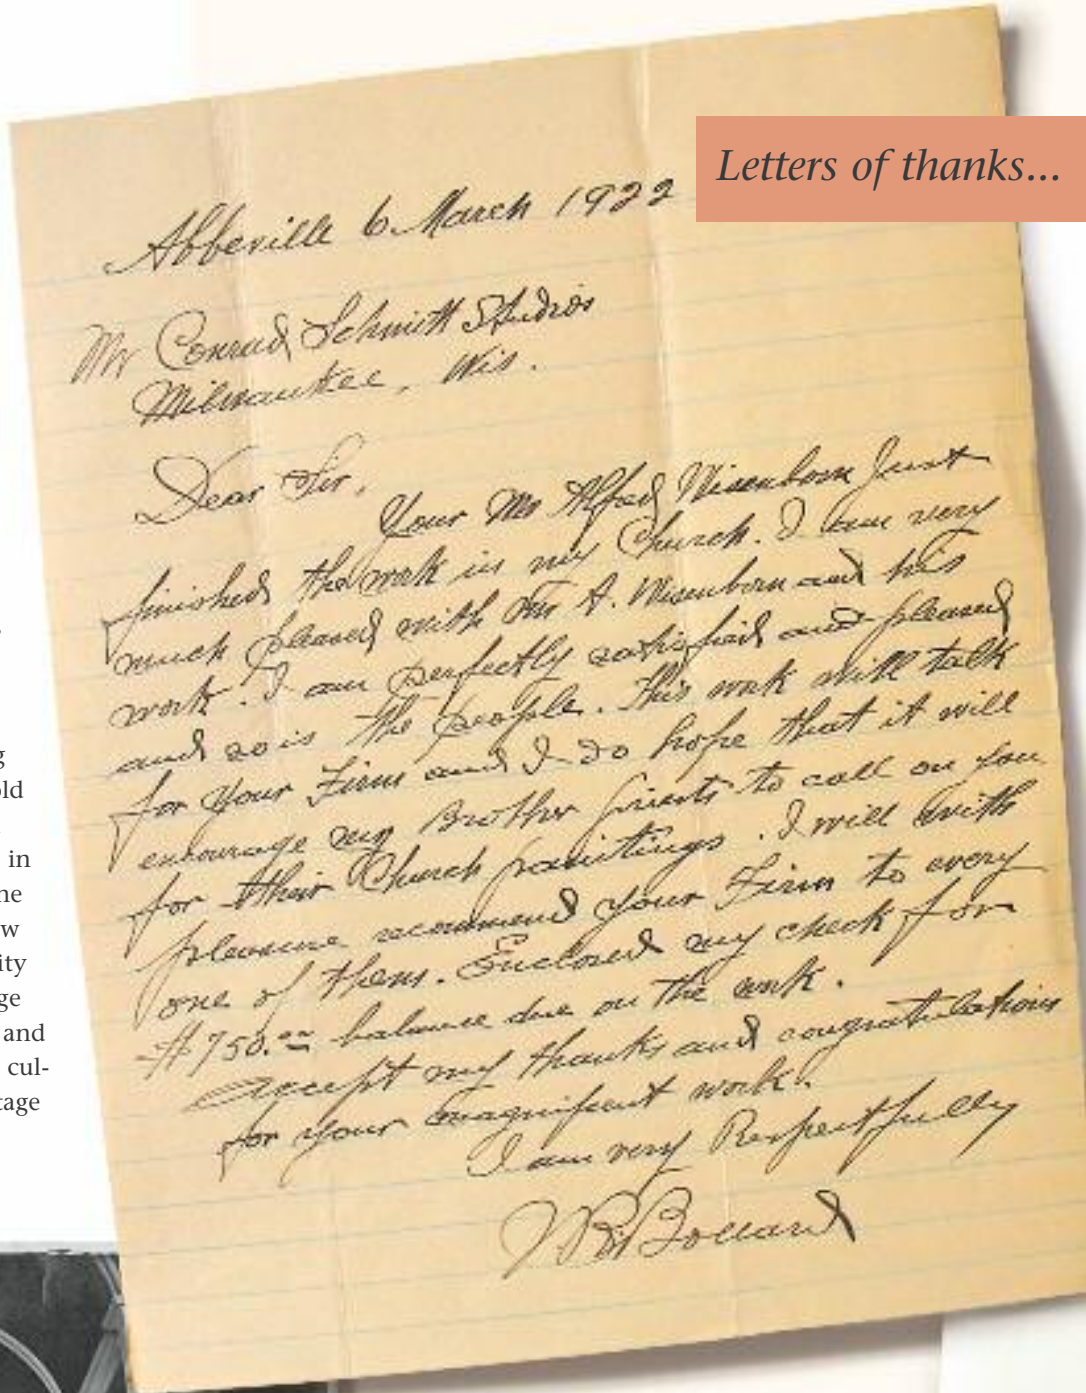 Letters of thanks...
Abbeville 6 March 1922
Mr Conrad Schmitt Studios
Milwaukee, Wis.
Dear Sir,
Your Mr Alfred Wisenborn Just
finished the work in my Church. I am very
much pleased with Mr A. Wisenborn and his
work. I am perfectly satisfied and pleased
and so is the people. This work will talk
for your Firm and I do hope that it will
encourage my Brother priests to call on you
for their Church paintings. I will with
pleasure recommend your Firm to every
one of them. Enclosed my check for
$750.00 balance due on the work.
Accept my thanks and congratulations
for your magnificent work.
I am very Respectfully
Bollard
g
old
in
ne
w
ity
ge
and
cul-
tage